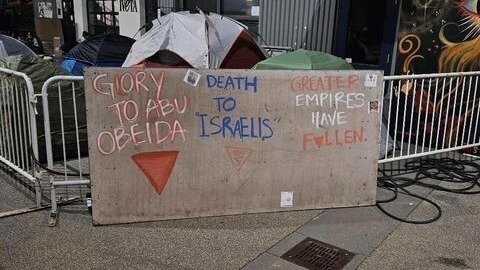 GLORY
TO ABU
OBEIDA
DEATH
TO
"ISRAELIS"
GREATER
EMPIRES
HAVE
FALLEN.